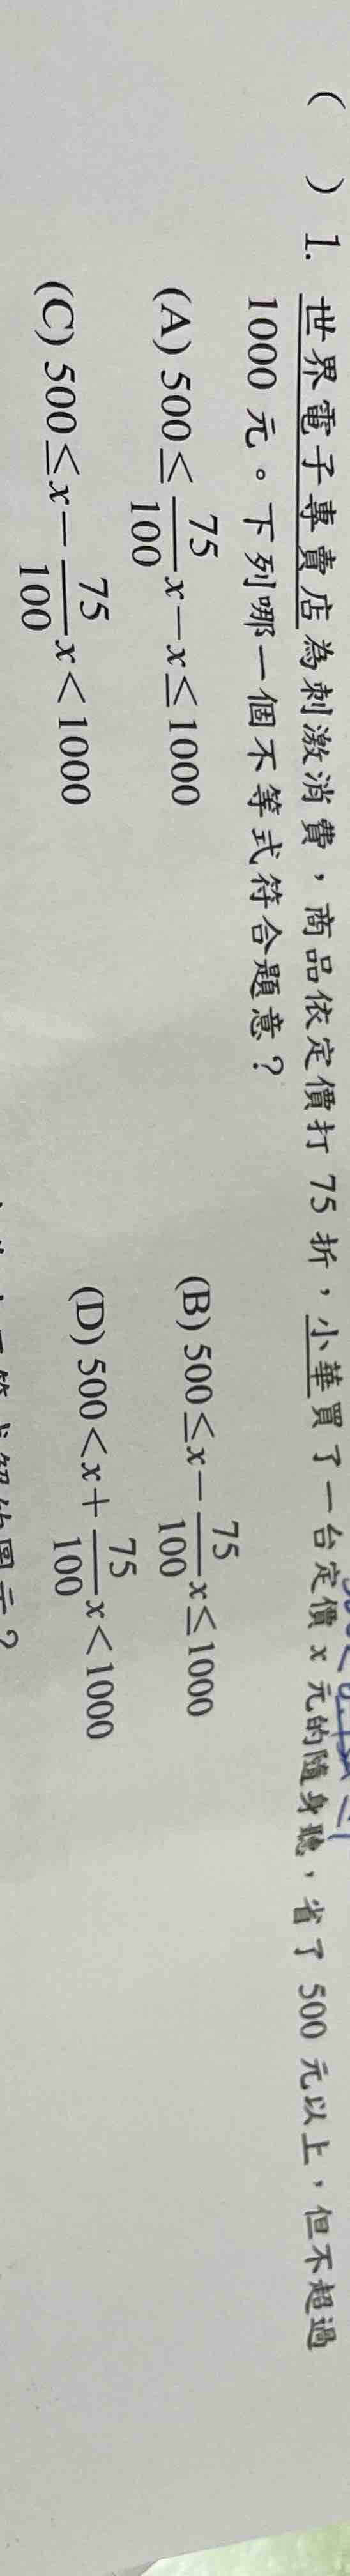 (　) 1. 世界電子專賣店為刺激消費，商品依定價打 75 折，小華買了一台定價 x 元的隨身聽，省了 500 元以上，但不超過
1000 元。下列哪一個不等式符合題意？
(A) 500≤75/100x−x≤1000 (B) 500≤x−75/100x≤1000
(C) 500≤x−75/100x<1000 (D) 500<x+75/100x<1000